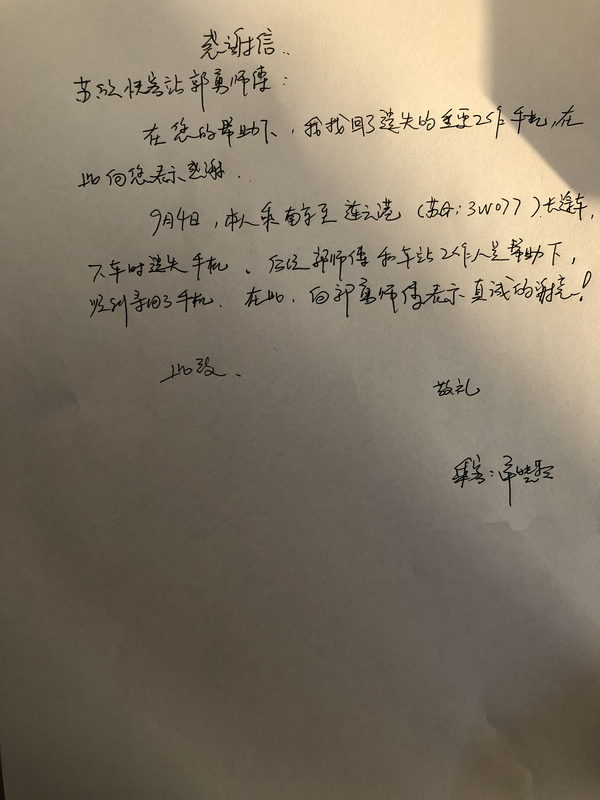 感谢信.
苏欣快客站郭勇师傅：
在您的帮助下，我找回了遗失的重要工作手机,在
此向您表示感谢.
9月4日，本人乘南京至连云港（苏G:3W077）长途车,
下车时遗失手机、后经郭师傅和车站工作人员帮助下，
顺利寻回了手机. 在此，向郭勇师傅表示真诚的谢意!
此致、
敬礼
乘客：